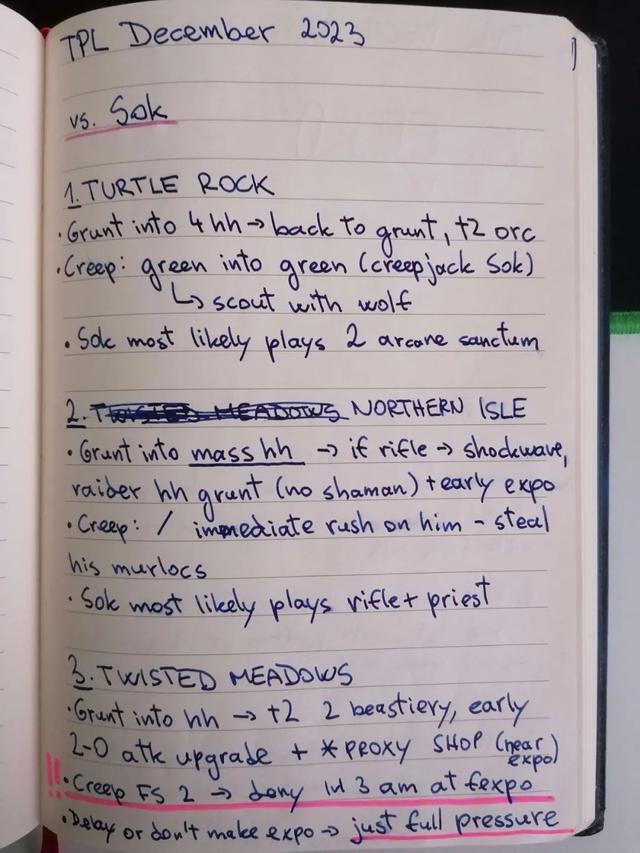 TPL December 2023
vs. Sok
1. TURTLE ROCK
• Grunt into 4 hh → back to grunt, t2 orc
• Creep: green into green (creepjack Sok)
↳ scout with wolf
• Sok most likely plays 2 arcane sanctum
2. TWISTED MEADOWS NORTHERN ISLE
• Grunt into mass hh → if rifle → shockwave,
raider hh grunt (no shaman) + early expo
• Creep: / immediate rush on him - steal
his murlocs
• Sok most likely plays rifle + priest
3. TWISTED MEADOWS
• Grunt into hh → t2 2 beastiery, early
2-0 atk upgrade + *PROXY SHOP (near expo)
!! • Creep FS 2 → deny lvl 3 am at fexpo
• Delay or don't make expo → just full pressure